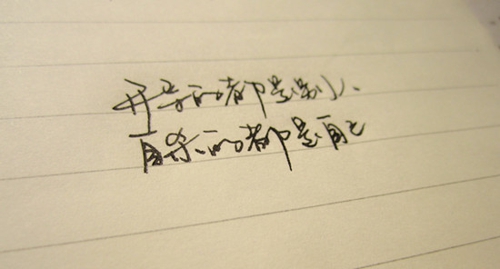 开导的都是别人
自杀的都是自己